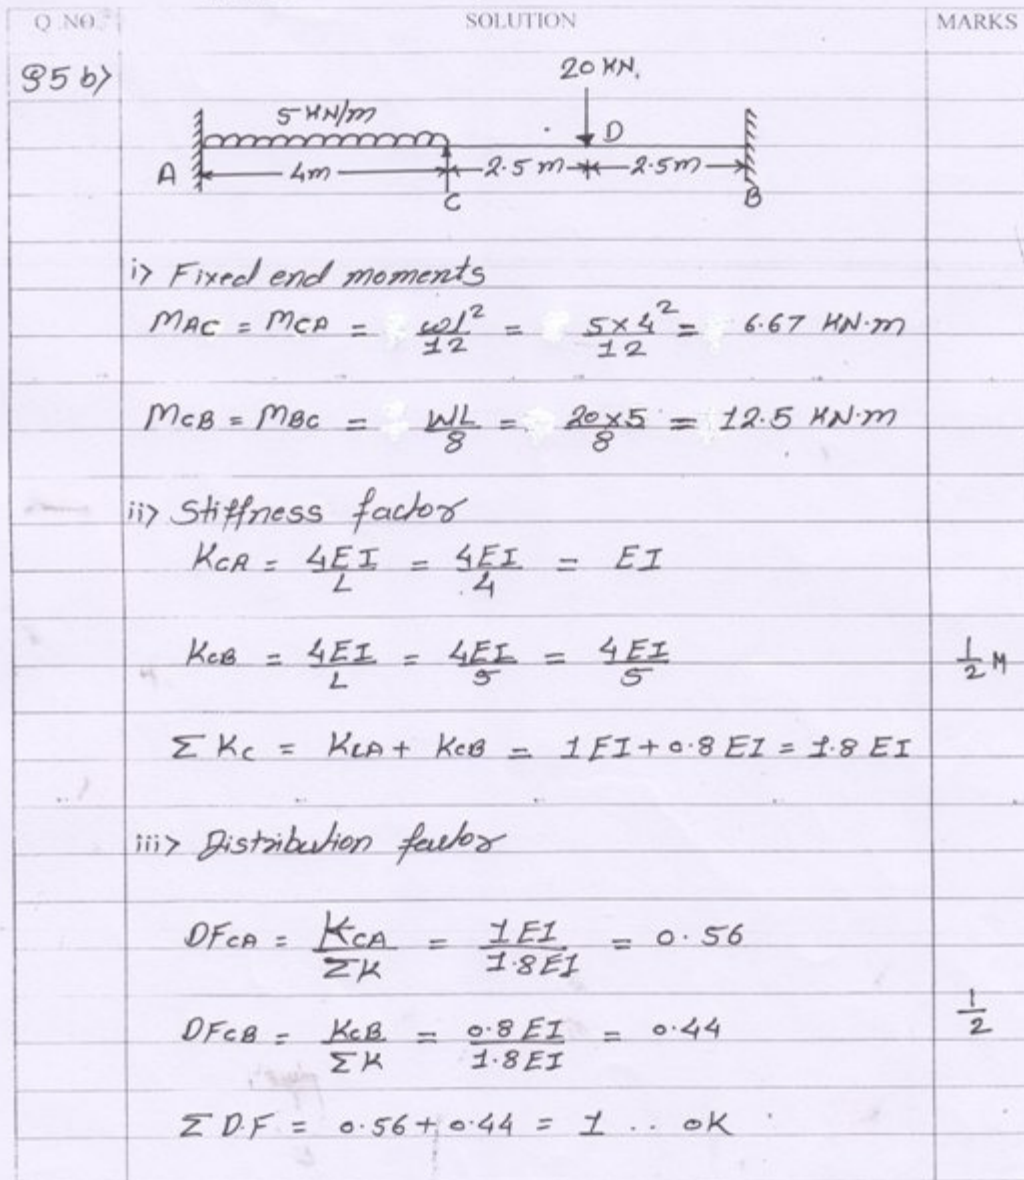 Q.NO. SOLUTION MARKS
Q5 b>
20 KN.
5 KN/m
D
A 4m 2.5 m 2.5m
C B
i> Fixed end moments
MAC = MCA = wl²/12 = 5×4²/12 = 6.67 KN.m
MCB = MBC = WL/8 = 20×5/8 = 12.5 KN.m
ii> Stiffness factor
KCA = 4EI/L = 4EI/4 = EI
KCB = 4EI/L = 4EI/5 = 4EI/5 1/2 M
Σ KC = KCA + KCB = 1EI + 0.8 EI = 1.8 EI
iii> Distribution factor
DFCA = KCA/ΣK = 1EI/1.8EI = 0.56
DFCB = KCB/ΣK = 0.8EI/1.8EI = 0.44 1/2
Σ D.F = 0.56 + 0.44 = 1 .. OK